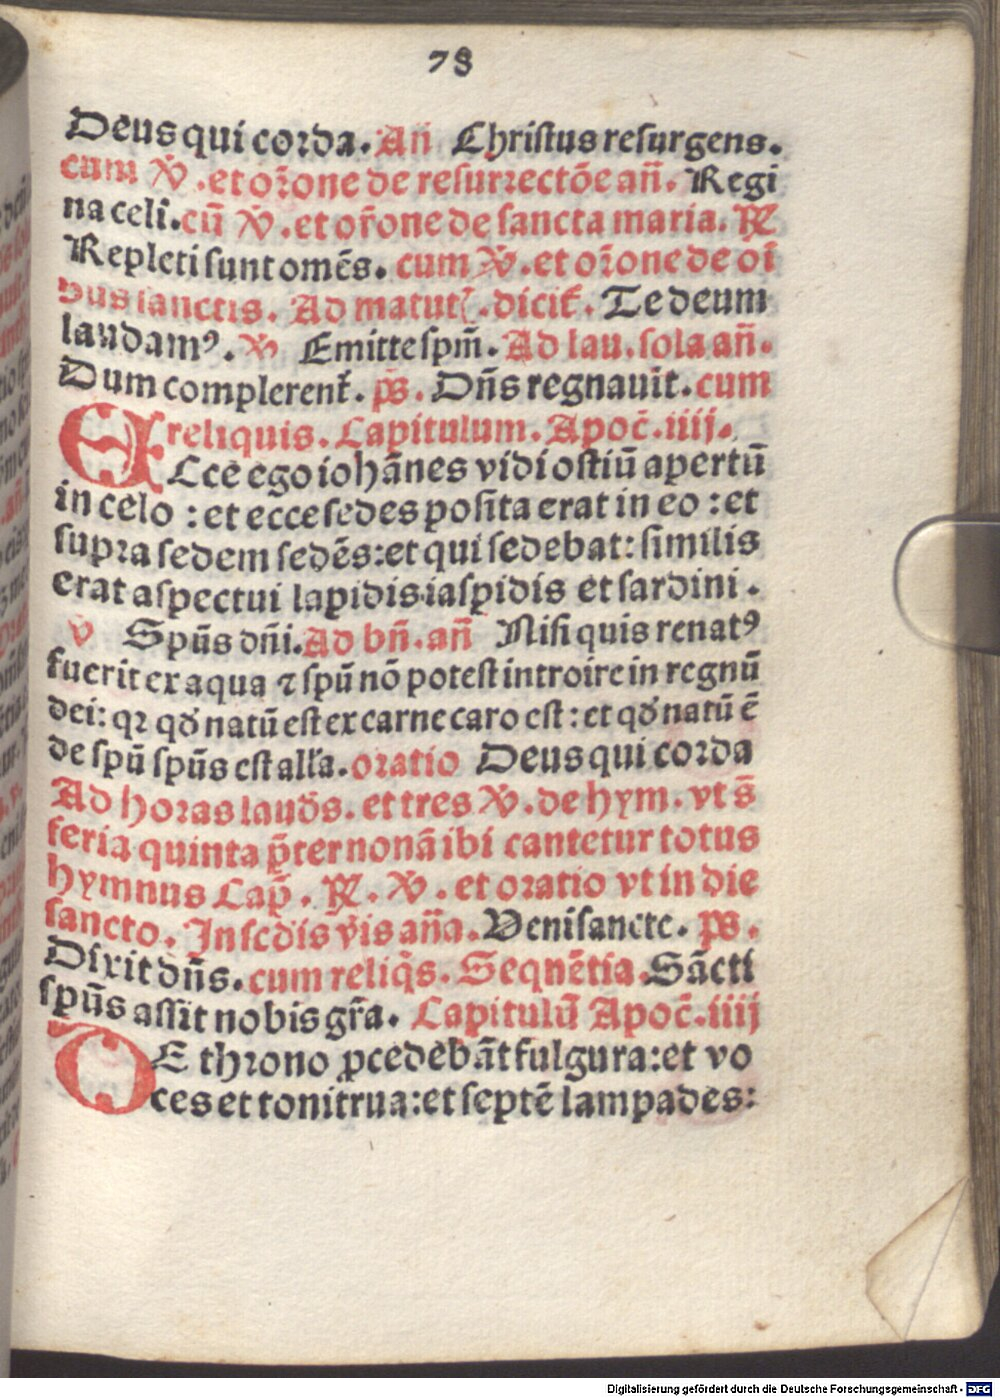 78
Deus qui corda. Añ Christus resurgens.
cum v̇. et or̃one de resurrectõe añ. Regi
na celi. cũ v̇. et or̃one de sancta maria. ꝶ
Repleti sunt omẽs. cum v̇. et or̃one de oĩ
bus sanctis. Ad matut. dicit᷑. Te deum
laudamꝰ. v̇ Emitte spm̃. Ad lau. sola añ.
Dum complerent᷑. p̃s. Dñs regnauit. cum
reliquis. Capitulum. Apoc̃. iiij.
ECce ego iohãnes vidi ostiũ apertũ
in celo : et ecce sedes posita erat in eo : et
supra sedem sedẽs: et qui sedebat: similis
erat aspectui lapidis iaspidis et sardini.
v̇ Spũs dñi. Ad bñ. añ Nisi quis renatꝰ
fuerit ex aqua ⁊ spũ nõ potest introire in regnũ
dei: qꝛ qď natũ est ex carne caro est : et qď natũ ẽ
de spũ spũs est all'a. oratio Deus qui corda
Ad horas lauďs. et tres v̇. de hym. vt s̃
feria quinta p̃ter nonã ibi cantetur totus
hymnus Cap̃. ꝶ. v̇. et oratio vt in die
sancto. In scďis ṽis aña. Veni sancte. ps.
Dixit dñs. cum reliq̃s. Seqnẽtia. Sãcti
spũs assit nobis gr̃a. Capitulũ Apoc̃. iiij
DE throno ꝓcedebãt fulgura: et vo
ces et tonitrua: et septẽ lampades:
Digitalisierung gefördert durch die Deutsche Forschungsgemeinschaft - DFG